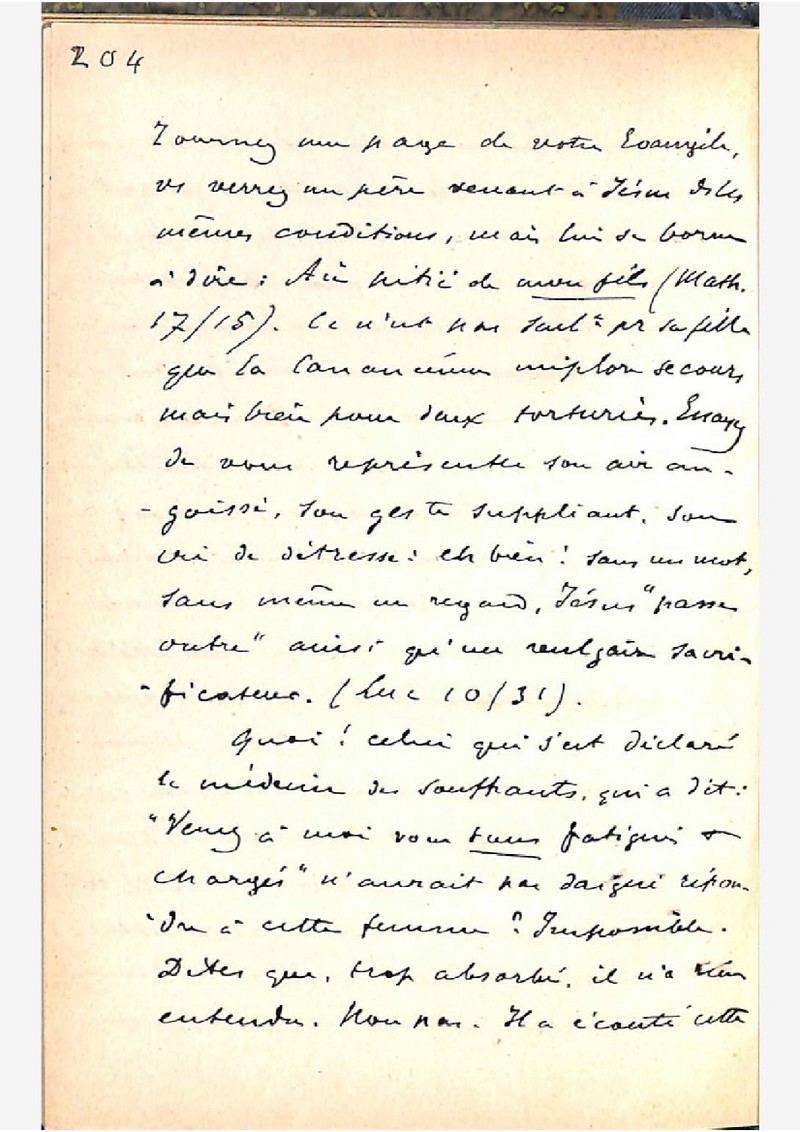 204
Tournez une page de votre Evangile,
vs verrez un père venant à Jésus ds les
mêmes conditions, mais lui se borne
à dire : Aie pitié de mon fils (Math.
17/15). Ce n'est pas seul^t pr sa fille
que la Cananéenne implore secours
mais bien pour deux torturés. Essayez
de vous représenter son air an-
- goissé, son geste suppliant, son
cri de détresse : eh bien ! sans un mot,
sans même un regard, Jésus "passe
outre" ainsi qu'un vulgaire sacri-
- ficateur. (Luc 10/31).
Quoi ! celui qui s'est déclaré
le médecin des souffrants, qui a dit :
"Venez à moi vous tous fatigués &
chargés" n'aurait pas daigné répon-
- dre à cette femme ? Impossible.
Dites que, trop absorbé, il n'a rien
entendu. Non pas. Il a écouté cette